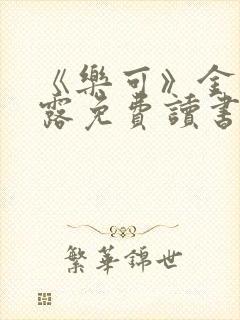 《樂可》全
露免費讀書
繁華錦世